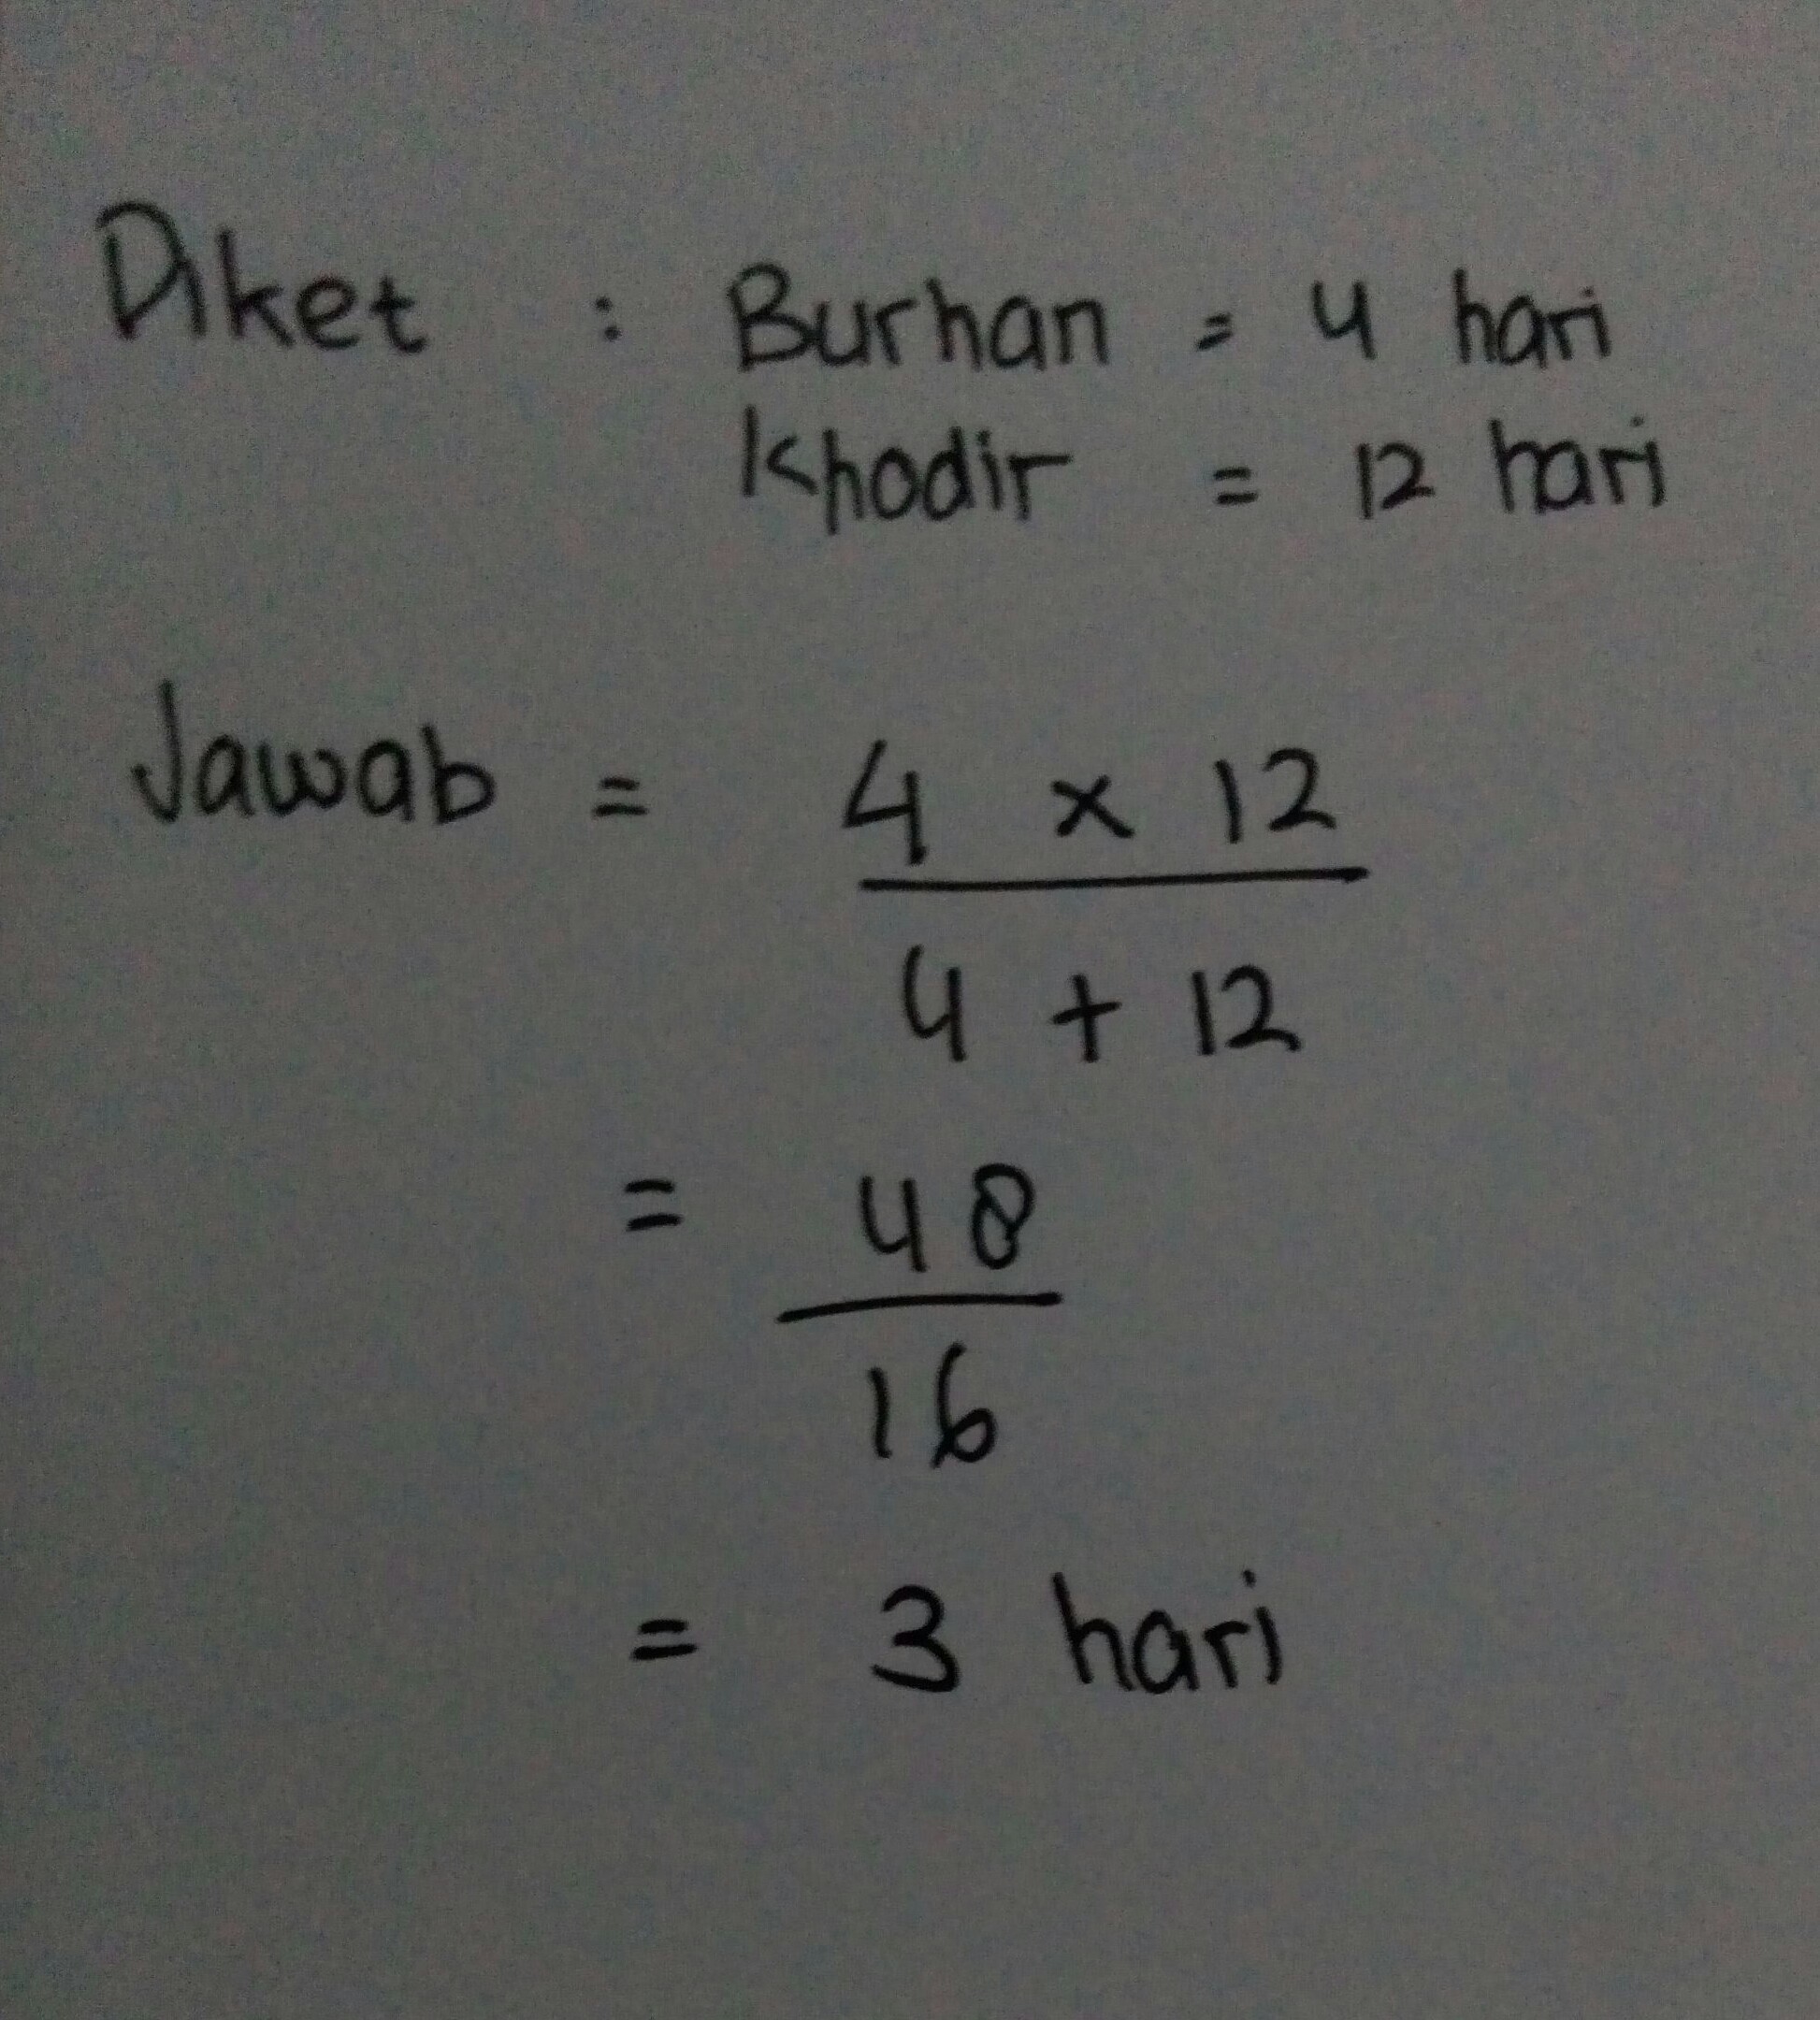 Diket : Burhan = 4 hari
Khodir = 12 hari
Jawab = 4 x 12
4 + 12
= 48
16
= 3 hari